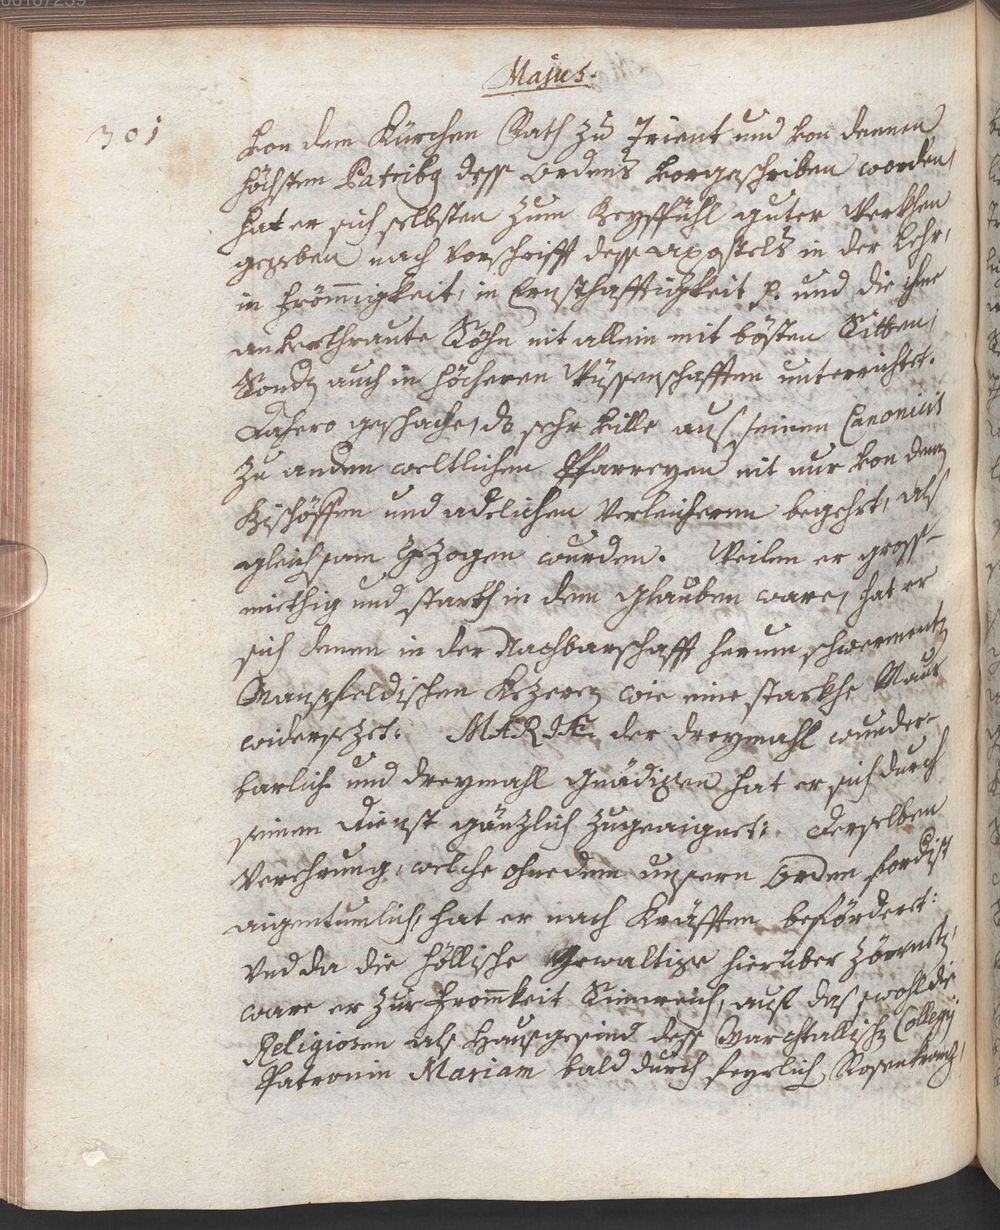 00107239
Majus.
301
von dem Kürchen Rath zu Trient und von dennen
höchsten Patribq dess ordens vorgeschriben worden,
hat er sich selbsten zum Beyspihl guter Werkhen
gegeben nach Vorschrifft dess Apostels in der Lehr,
in Frömmigkeit, in Ernsthafftigkeit p. und die ihme
anverthraute Söhn nit allein mit bösten Sitten,
Sond auch in höcheren Wüssenschafften unterrichtet.
Dahero geschache, ds sehr ville aus seinen Canonicis
zu anden weltlichen Pfarreyen nit nur von denen
Bischöffen und adelichen Verleicheren begehrt, als
gleichsam gezogen wurden. Weilen er gross-
miethig und starkh in dem Glauben ware, hat er
sich denen in der Nachbarschafft herum schwermenten
Mansfeldischen Kezeren wie eine starkhe Maur
widersezet: MARIÆ der dreymahl wunder-
barlich und dreymahl Gnädigen hat er sich durch
seinen Dienst gänzlich zugeaignet: derselben
Verehrung, welche ohnedem unsern Orden fordist
aigentumlich, hat er nach Kräfften beförderet:
Und da die höllische Gewaltige hierüber zörnet,
ware er zur Fromkeit Sinnreich, auf das sowohl die
Religiosen als Hausgesind dess Marchtallisch Collegij
Patronin Mariam bald durch feyrlich Rosenkranz,